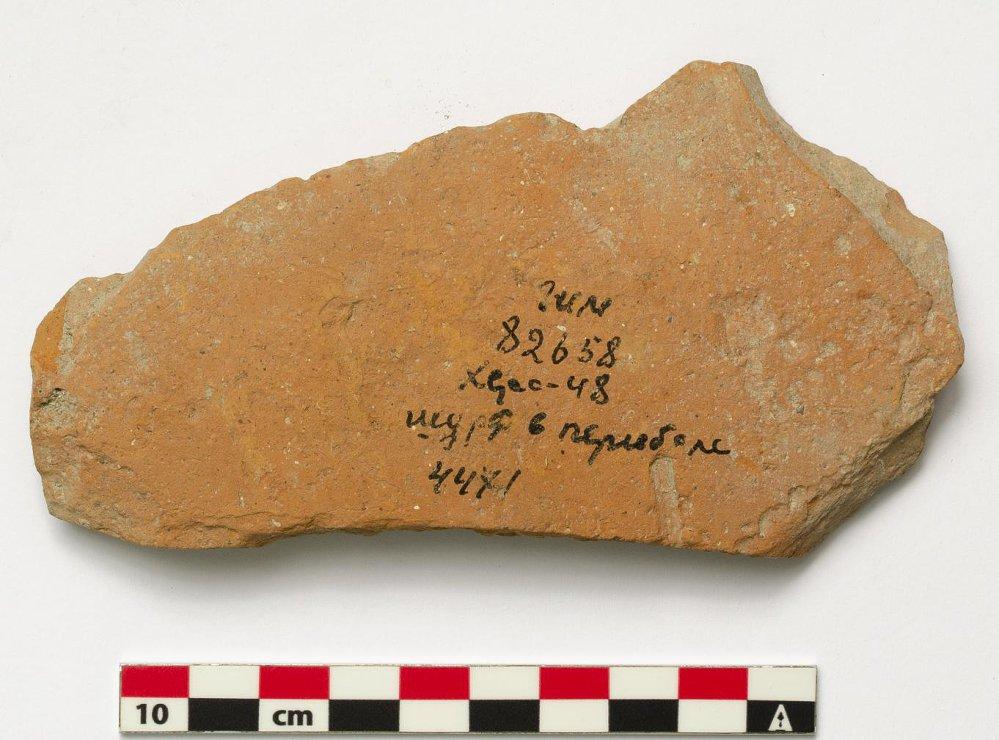 ГИМ
82658
Херс-48
шурф в периболе
44X1
10 cm
A